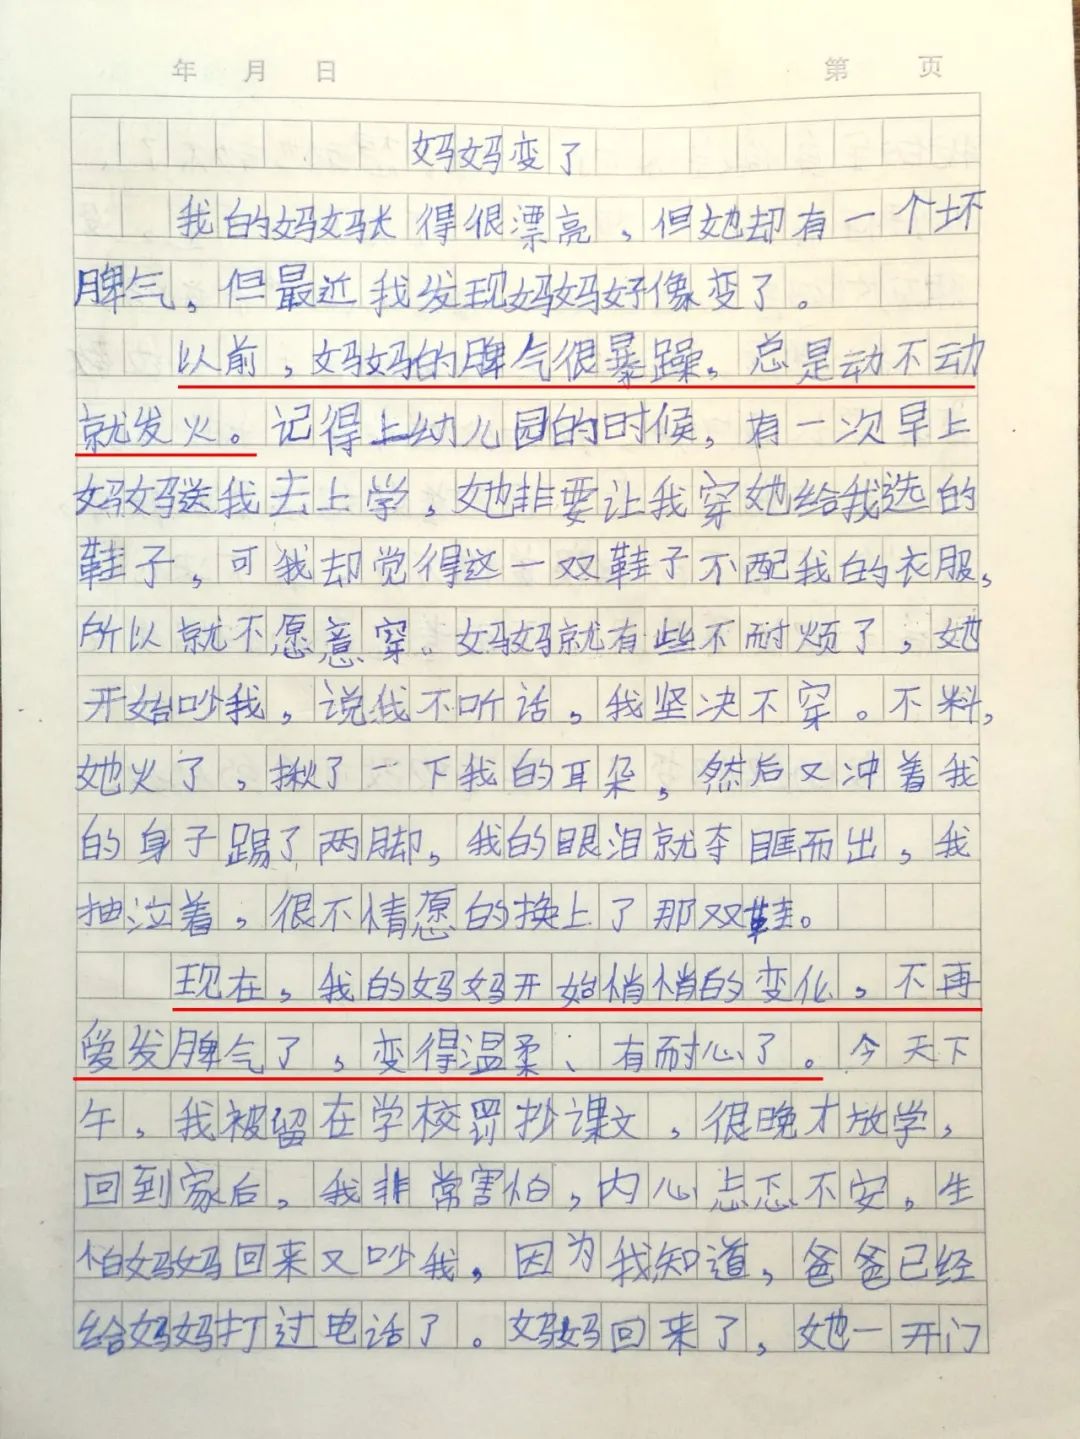 年 月 日 第 页
妈妈变了
我的妈妈长得很漂亮，但她却有一个坏
脾气，但最近我发现妈妈好像变了。
以前，妈妈的脾气很暴躁，总是动不动
就发火。记得上幼儿园的时候，有一次早上
妈妈送我去上学，她非要让我穿她给我选的
鞋子，可我却觉得这一双鞋子不配我的衣服，
所以就不愿意穿。妈妈就有些不耐烦了，她
开始吵我，说我不听话，我坚决不穿。不料，
她火了，揪了一下我的耳朵，然后又冲着我
的身子踢了两脚，我的眼泪就夺眶而出，我
抽泣着，很不情愿的换上了那双鞋。
现在，我的妈妈开始悄悄的变化，不再
爱发脾气了，变得温柔、有耐心了。今天下
午，我被留在学校罚抄课文，很晚才放学，
回到家后，我非常害怕，内心忐忑不安，生
怕妈妈回来又吵我，因为我知道，爸爸已经
给妈妈打过电话了。妈妈回来了，她一开门